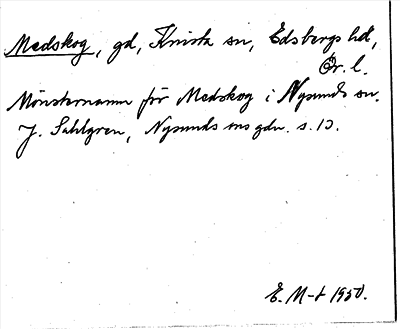 Medskog, gd, Knista sn, Edsbergs hd,
Ör. l.
Mönsternamn för Medskog i Nysunds sn.
J. Sahlgren, Nysunds sns gdn. s. 13.
E. M-t 1950.